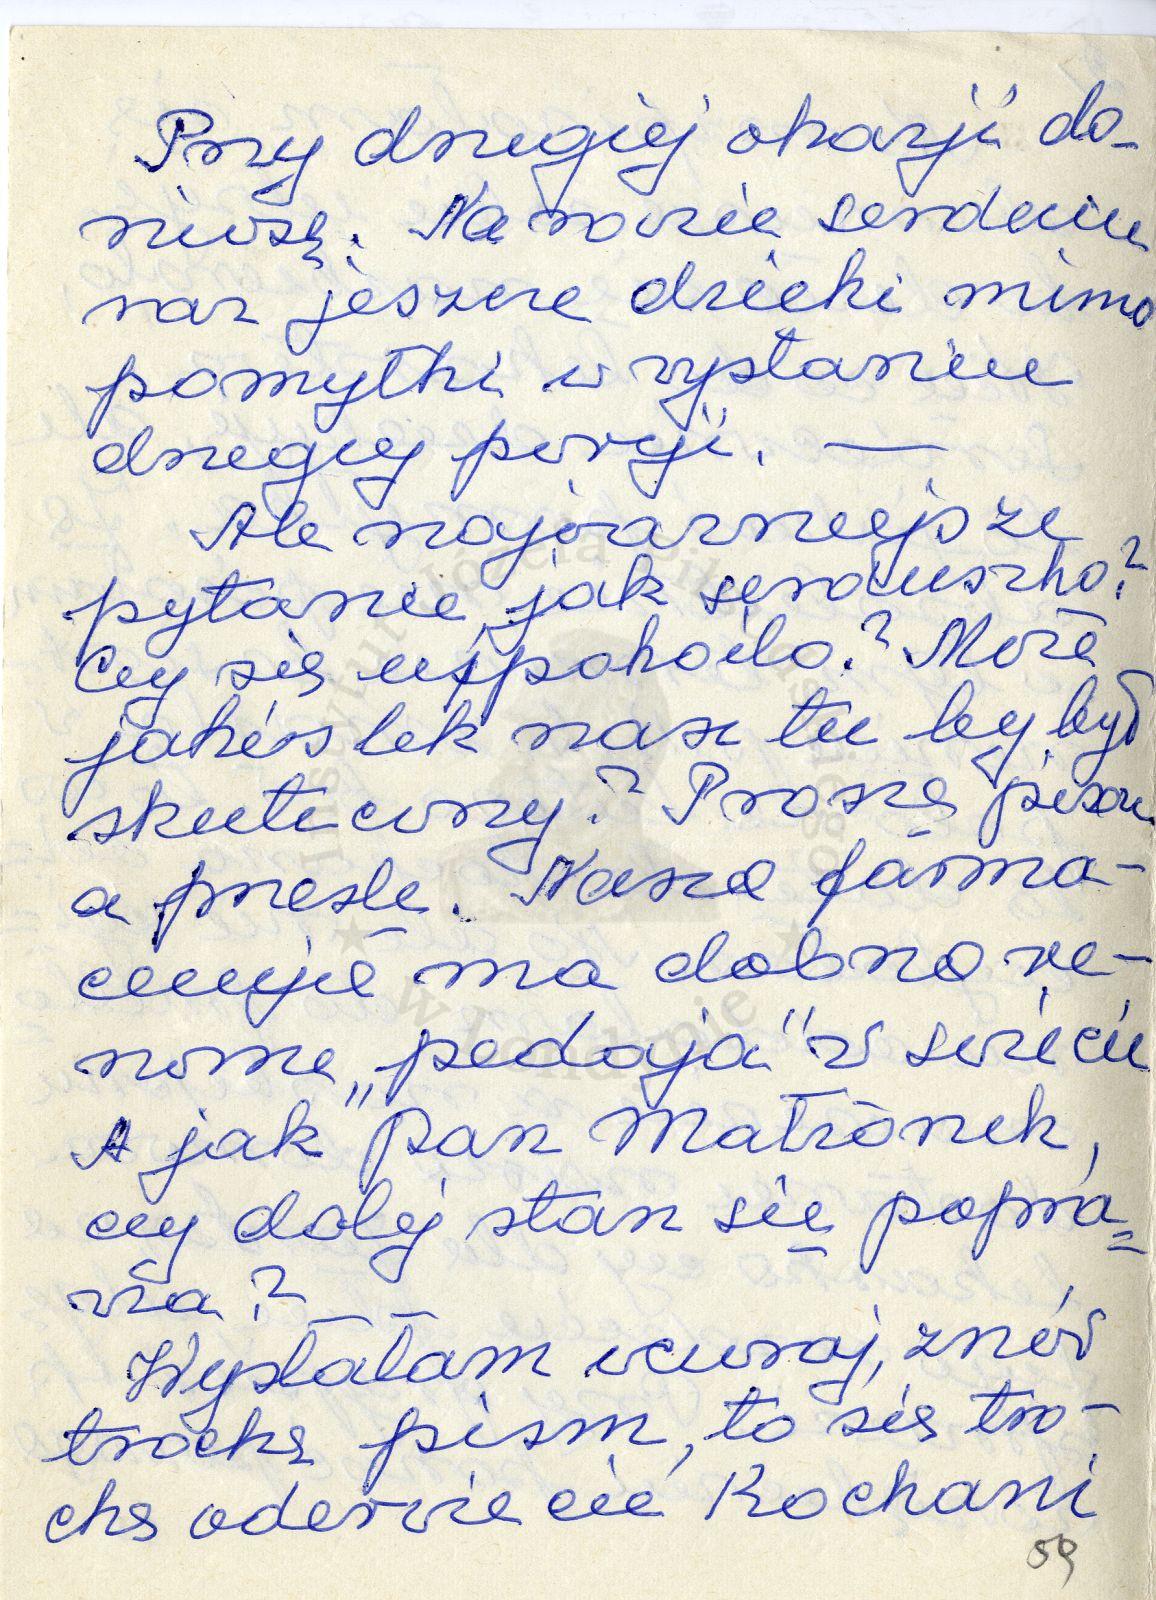 Przy drugiej okazji do-
niosę. Na razie serdecznie
raz jeszcze dzięki mimo
pomyłki w wysłaniu
drugiej porcji. —
Ale najważniejsze
pytanie, jak serduszko?
Czy się uspokoiło? Może
jakiś lek nasz tu by był
skuteczny? Proszę pisać
a prześlę. Nasza farma-
ceucja ma dobrą re-
nomę „podają” w świecie
A jak Pan Małżonek,
czy dalej stan się popra=
wia?
Wysłałam wczoraj, znów
trochę pism, to się tro-
chę oderwiecie Kochani
59
Instytut Józefa Piłsudskiego
w Londynie